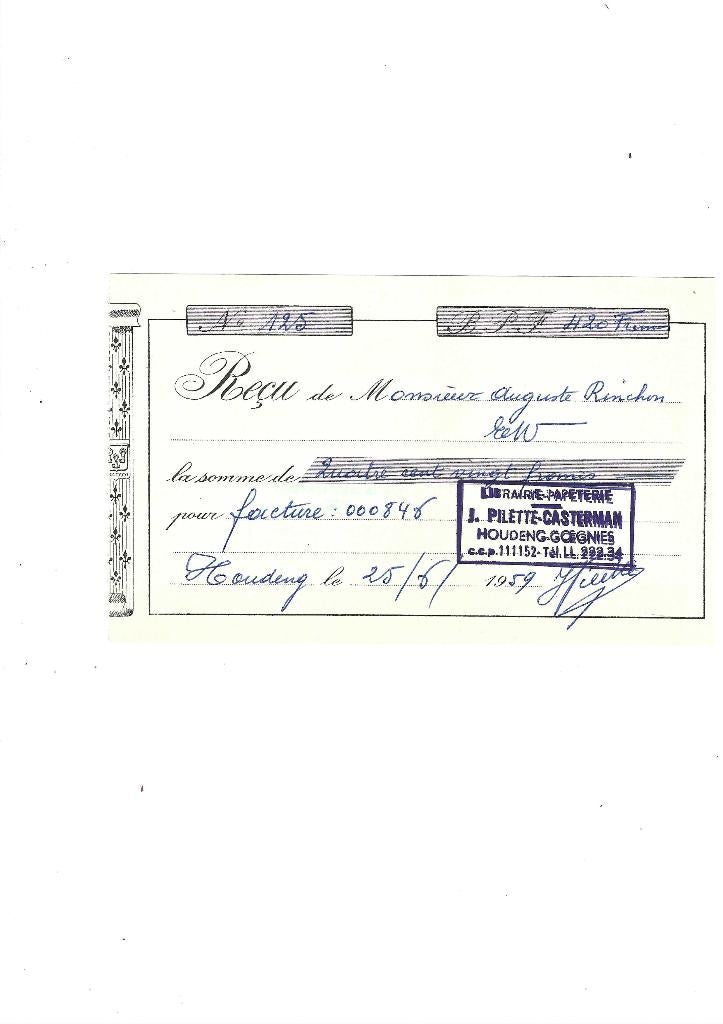 No 125 B.P.F. 420 Francs
Reçu de Monsieur Auguste Rinchon
la somme de Quatre cent vingt francs
pour facture : 000846
LIBRAIRIE-PAPETERIE
J. PILETTE-CASTERMAN
HOUDENG-GŒGNIES
c.c.p. 111152 - Tél. LL. 222.34
Houdeng le 25/6/ 1959